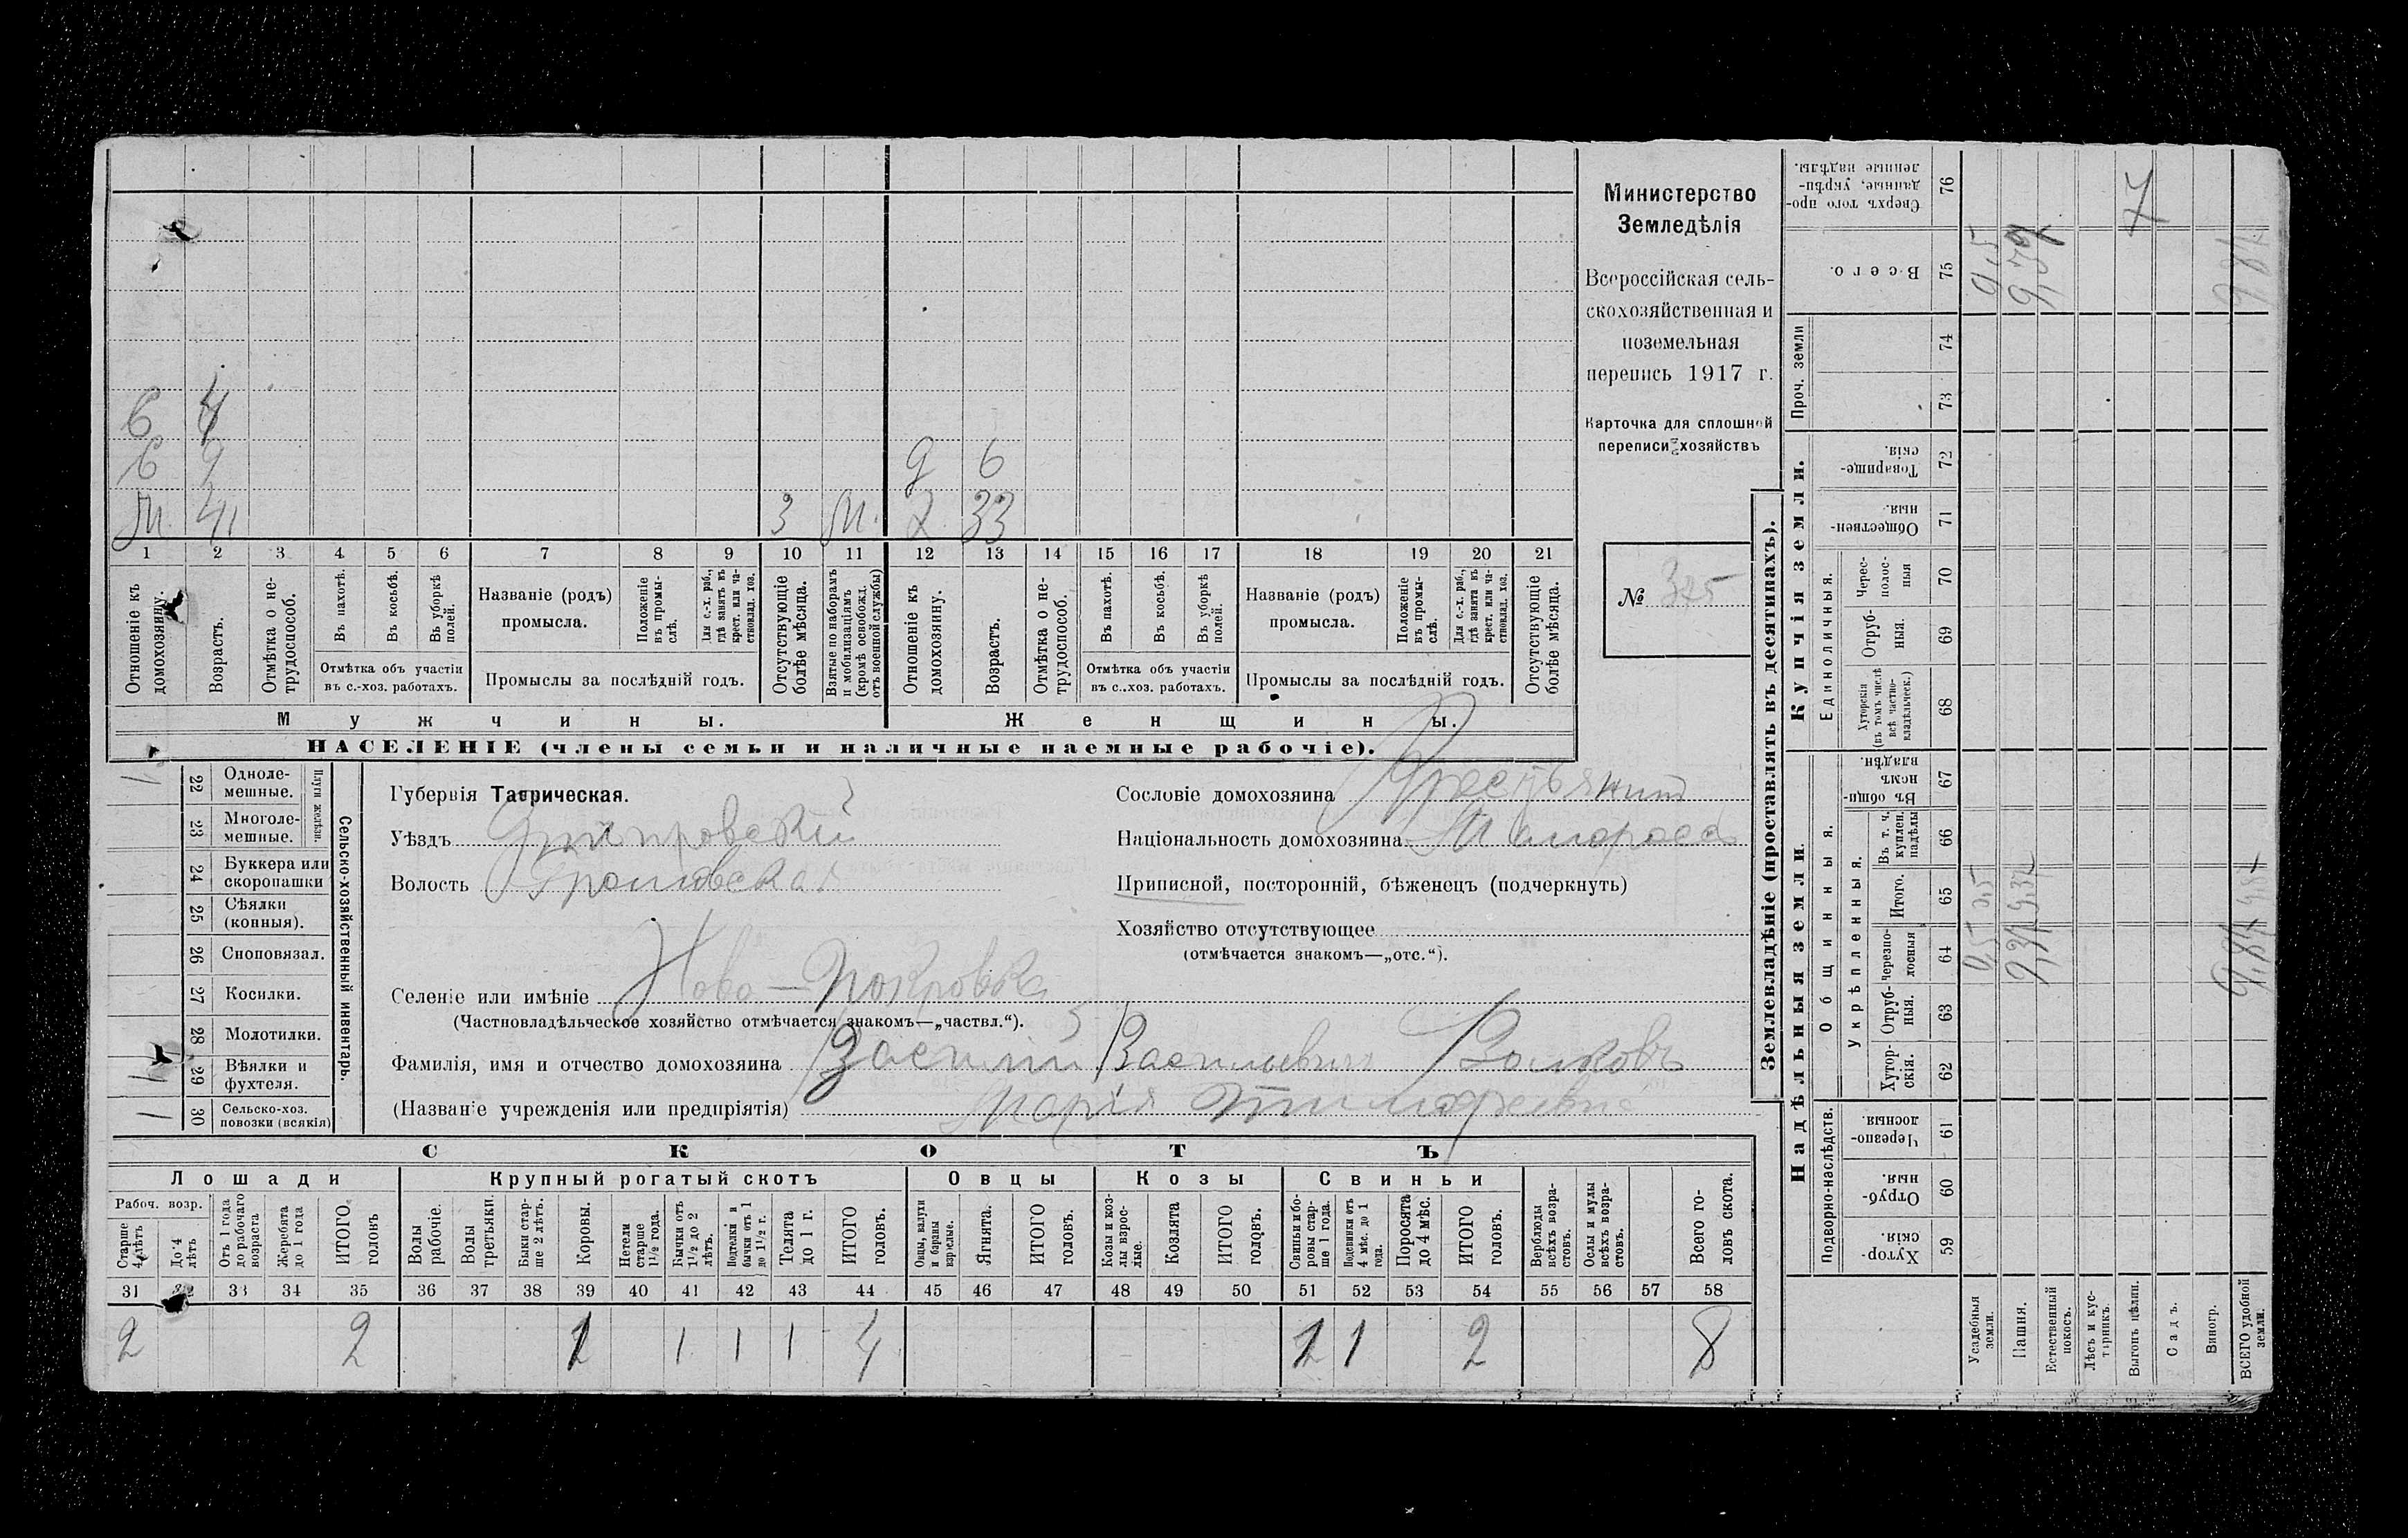 6 4
6 9 9 6
М. 41 3 М. 2 33
1 2 3 4 5 6 7 8 9 10 11 12 13 14 15 16 17 18 19 20 21
Отношеніе къ домохозяину.
Возрастъ.
Отмѣтка о нетрудоспособ.
Въ пахотѣ.
Въ косьбѣ.
Въ уборкѣ полей.
Отмѣтка объ участіи
въ с.-хоз. работахъ.
Названіе (родъ)
промысла.
Положеніе въ промыслѣ.
Для с.-х. раб., гдѣ занятъ въ крест. или частновлад. хоз.
Промыслы за послѣдній годъ.
Отсутствующіе болѣе мѣсяца.
Взятые по наборамъ и мобилизаціямъ (кромѣ освобожд. отъ военной службы)
Отношеніе къ домохозяину.
Возрастъ.
Отмѣтка о нетрудоспособ.
Въ пахотѣ.
Въ косьбѣ.
Въ уборкѣ полей.
Отмѣтка объ участіи
въ с..хоз. работахъ.
Названіе (родъ)
промысла.
Положеніе въ промыслѣ.
Для с.-х. раб., гдѣ занята въ крест. или частновлад. хоз.
Промыслы за послѣдній годъ.
Отсутствующіе болѣе мѣсяца.
Мужчины. Женщины.
НАСЕЛЕНІЕ (члены семьи и наличные наемные рабочіе).
Министерство
Земледѣлія
Всероссійская сель-
скохозяйственная и
поземельная
перепись 1917 г.
Карточка для сплошной
переписи хозяйствъ
№ 325
Сельско-хозяйственный инвентарь.
Плуги желѣзн.
1 22 Одноле-
мешные.
23 Многоле-
мешные.
24 Буккера или
скоропашки
25 Сѣялки
(конныя).
26 Сноповязал.
27 Косилки.
28 Молотилки.
1 29 Вѣялки и
фухтеля.
1 30 Сельско-хоз.
повозки (всякія)
Губернія Таврическая.
Уѣздъ Днѣпровскій
Волость
Селеніе или имѣніе Ново-Покровка
(Частновладѣльческое хозяйство отмѣчается знакомъ—„частвл.“).
Фамилія, имя и отчество домохозяина Василій Васильевич Волковъ
(Названіе учрежденія или предпріятія) Марія Тимофеевна
Сословіе домохозяина Крестьянин
Національность домохозяина Малоросс
Приписной, посторонній, бѣженецъ (подчеркнуть)
Хозяйство отсутствующее
(отмѣчается знакомъ—„отс.“).
СКОТЪ
Лошади Крупный рогатый скотъ Овцы Козы Свиньи
Рабоч. возр.
Старше 4 лѣтъ
До 4 лѣтъ
Отъ 1 года до рабочаго возраста
Жеребята до 1 года
ИТОГО головъ
Волы рабочіе.
Волы третьяки.
Быки старше 2 лѣтъ.
Коровы.
Нетели старше 1½ года.
Бычки отъ 1½ до 2 лѣтъ.
Подтелки и бычки отъ 1 до 1½ г.
Телята до 1 г.
ИТОГО головъ.
Овцы, валухи и бараны взрслые.
Ягнята.
ИТОГО головъ.
Козы и козлы взрослые.
Козлята
ИТОГО головъ.
Свиньи и боровы старше 1 года.
Подсвинки отъ 4 мѣс. до 1 года.
Поросята до 4 мѣс.
ИТОГО головъ.
Верблюды всѣхъ возрастовъ.
Ослы и мулы всѣхъ возрастовъ.
Всего головъ скота.
31 32 33 34 35 36 37 38 39 40 41 42 43 44 45 46 47 48 49 50 51 52 53 54 55 56 57 58
2 2 1 1 1 1 4 1 1 2 8
Землевладѣніе (проставлять въ десятинахъ).
Надѣльныя земли.
Купчія земли.
Проч. земли
Подворно-наслѣдств.
Общинныя.
Укрѣпленныя.
Единоличныя.
Хуторскія. 59
Отрубныя. 60
Черезполосныя 61
Хуторскія. 62
Отрубныя. 63
Черезполосныя 64
Итого. 65
Въ т. ч. куплен. надѣлы 66
Въ общинномъ владѣн. 67
Хуторскія (въ томъ числѣ всѣ частновладѣльческ.) 68
Отрубныя. 69
Чересполосныя 70
Общественныя. 71
Товарищескія. 72
73
74
Всего. 75
Сверхъ того проданные, укрѣпленные надѣлы. 76
Усадебныя земли. 0,5
Пашня. 9,34
Естественный покосъ.
Лѣсъ и кустарникъ.
Выгонъ цѣлин. 7
Садъ.
Виногр.
ВСЕГО удобной земли. 9,84